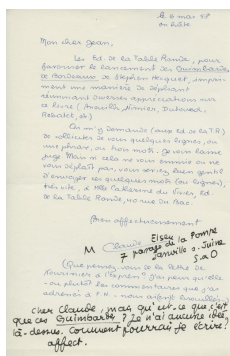 le 6 mai 58
en hâte
Mon cher Jean,
Les Ed. de la Table Ronde, pour
favoriser le lancement des Guimbardes
de Bordeaux de Stephen Hecquet, impri-
ment une manière de dépliant
réunissant diverses appréciations sur
ce livre (Anouilh, Nimier, Dutourd,
Rebatet, etc)
On m'y demande (aux ed. de la T.R.)
de solliciter de vous quelques lignes, ou
une phrase, ou trois mots. Je vous laisse
juge. Mais si cela ne vous ennuie ou ne
vous déplaît pas, vous seriez bien gentil
d'envoyer ces quelques mots (ou lignes),
très vite, à Mlle Catherine
de la Table Ronde, 40 rue du Bac.
Bien affectueusement
M Claude Elsen
7 parage de la Pompe
Janville s. Juine
S. a O
(Que pensez-vous de la lettre de
"Fournier à l'Express"? J'ai peur qu'elle
- ou plutôt les commentaires que j'ai
adressés à
cher Claude, mais qu'est-ce que c'est
que ces Guimbardes? Je n'ai aucune idée
là-dessus. Comment pourrais-je écrire?
affect.